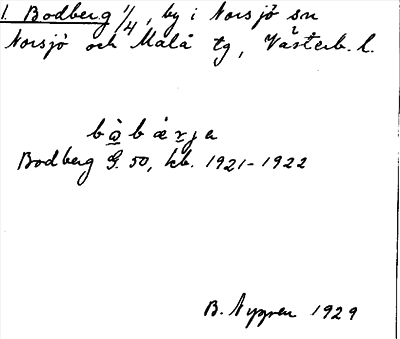 1. Bodberg 1/4, by i Norsjö sn
Norsjö och Malå tg, Västerb. l.
båbärja
Bodberg G. 50, kb. 1921-1922
B. Nygren 1929